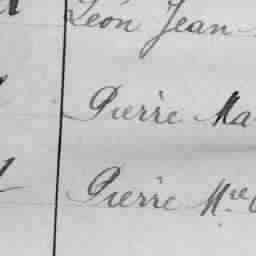 Léon Jean
Pierre Ma
Pierre Mie